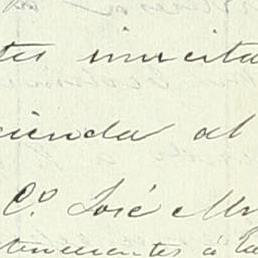 tes invita
cienda al
C.º José Ma
tenecientes á la